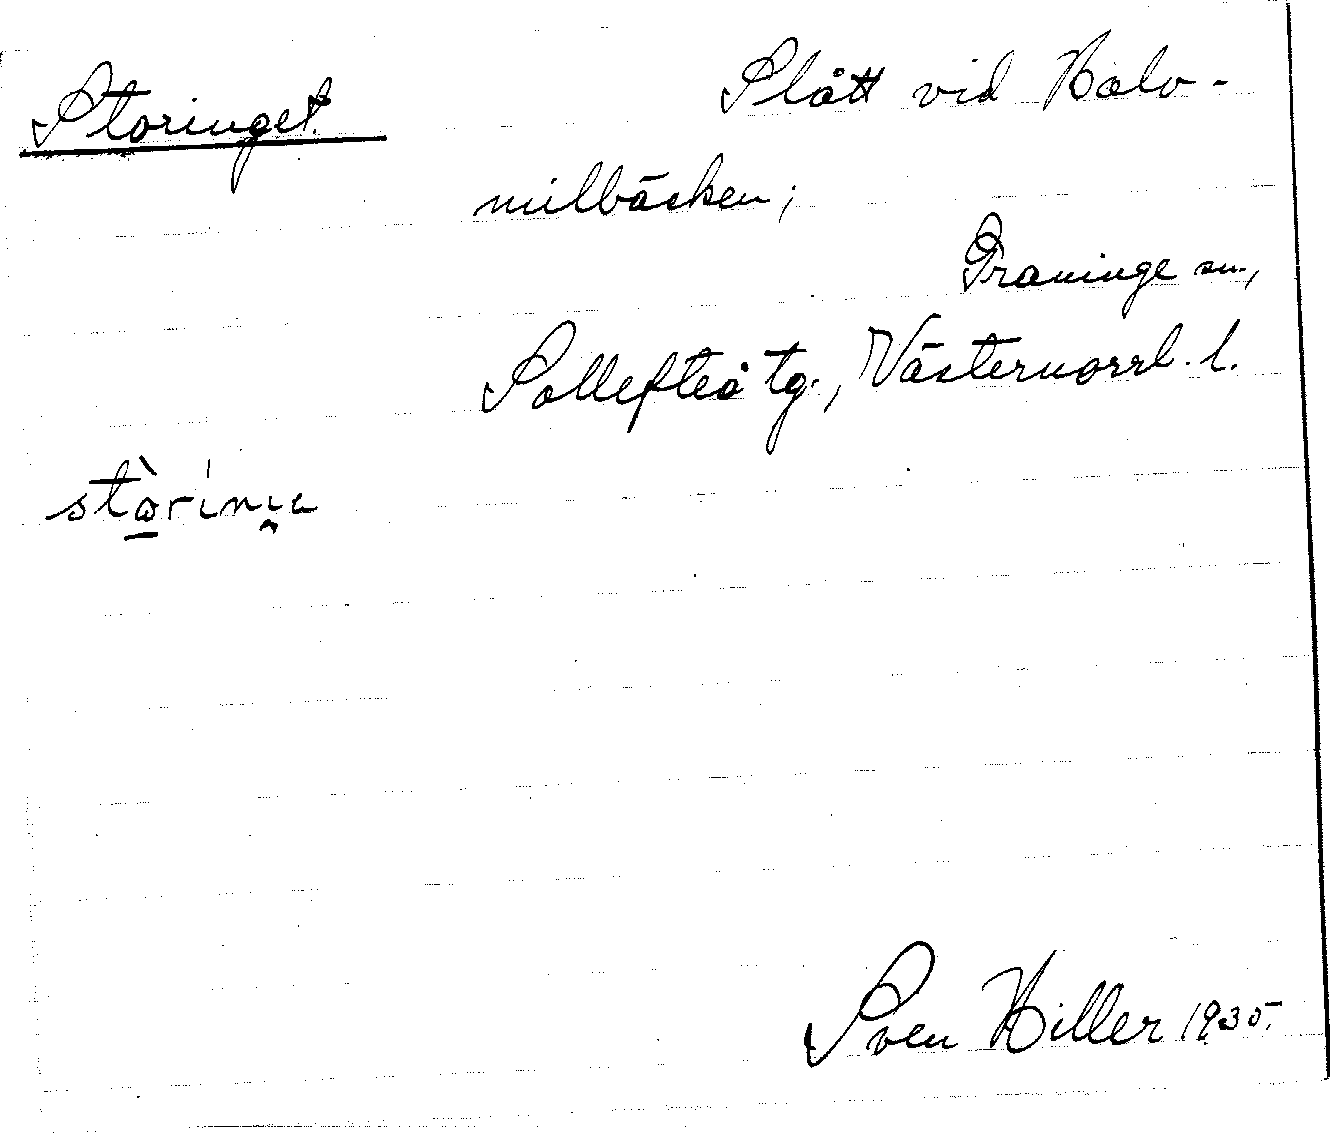 Storinget. Slått vid Halv-
milbäcken;
Graninge sn.,
Sollefteå tg., Västernorrl. l.
Sven Hiller 1935.